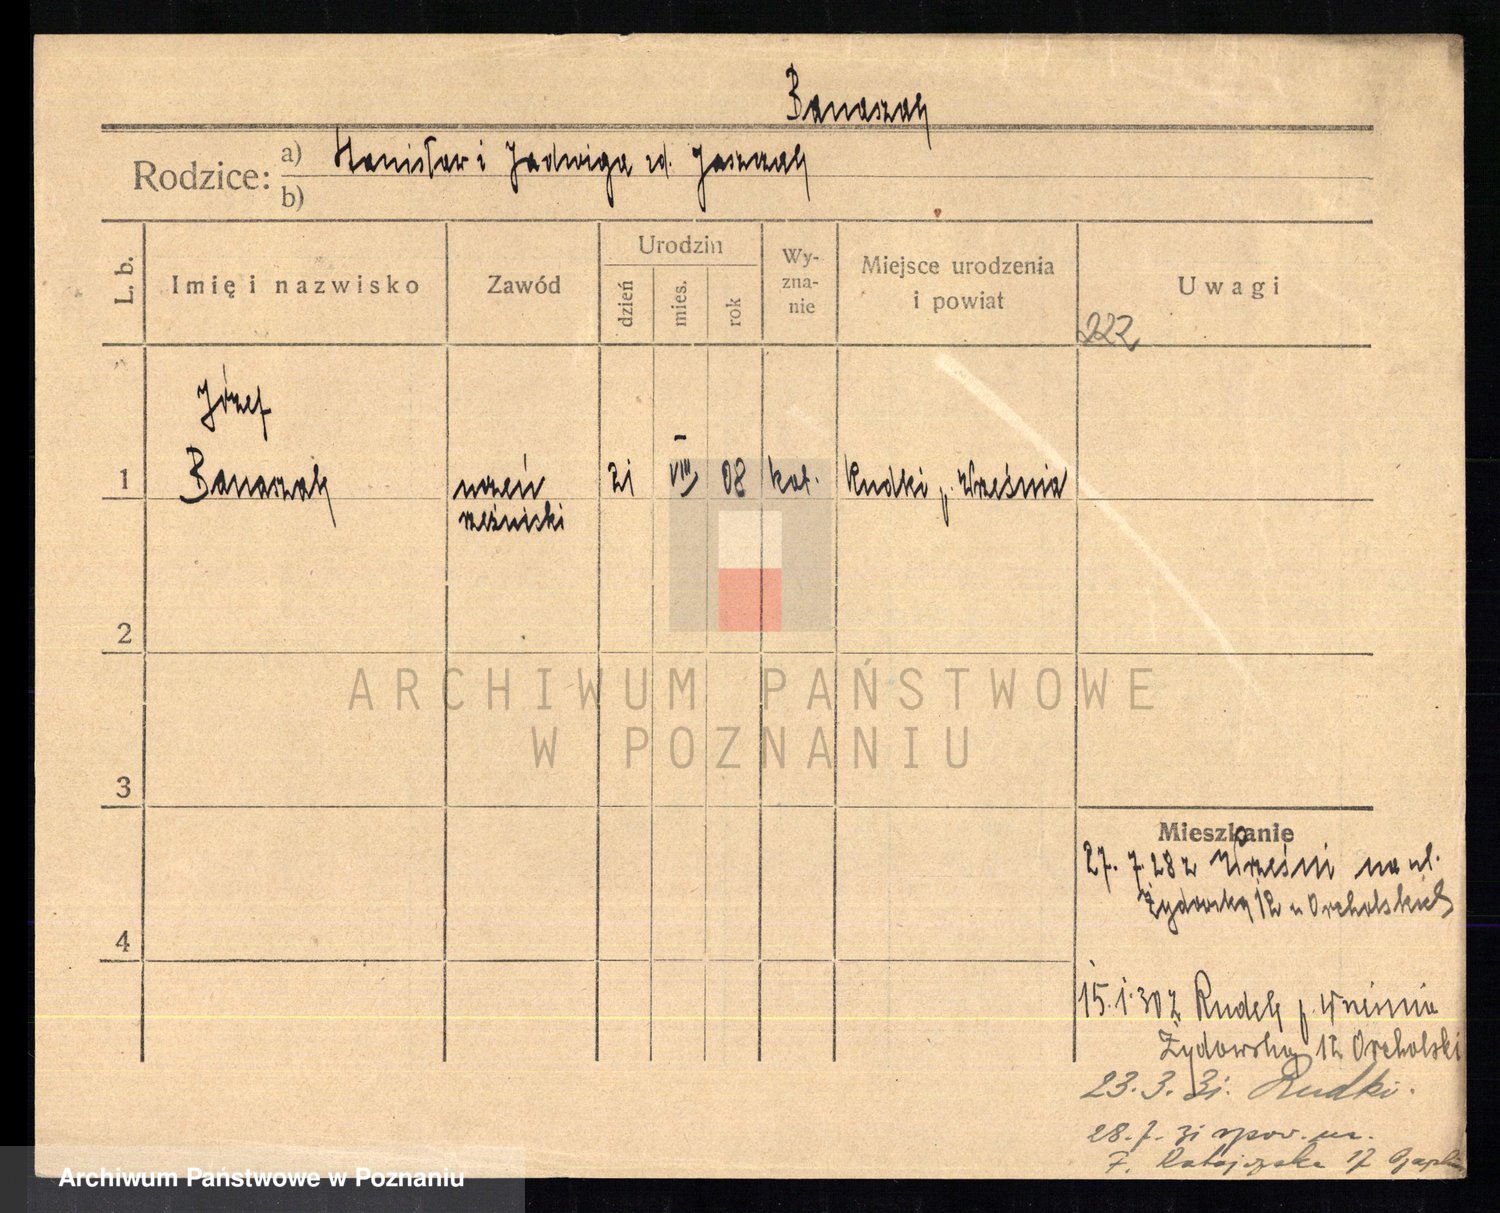 Banaszak
Rodzice: a) Stanisław i Jadwiga zd. Jaszczak
b)
L. b.
Imię i nazwisko
Zawód
Urodzin
dzień
mies.
rok
Wy-
zna-
nie
Miejsce urodzenia
i powiat
Uwagi
222
Józef
1 Banaszak uczeń 21 VIII 08 kat. Rudki p. Września
rzeźnicki
2
ARCHIWUM PAŃSTWOWE
W POZNANIU
3
Mieszkanie
27. 7. 28 z Wrześni na ul.
Żydowską 12 u Orcholskich
4
15. 1. 30 z Rudek p. Września
Żydowska 12 Orcholski
23. 3. 31. Rudki.
28. 7. 31 spow.
F. Ratajczaka 17
Archiwum Państwowe w Poznaniu